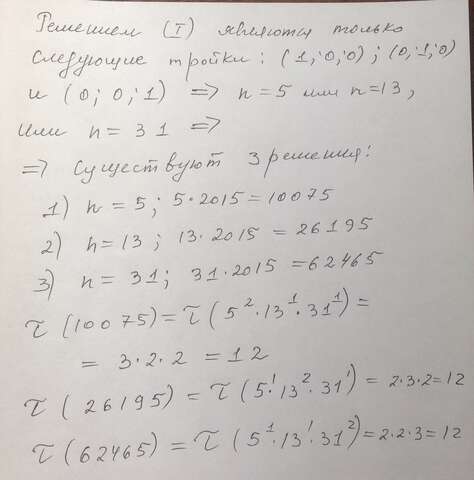 Решением (I) являются только
следующие тройки: (1; 0; 0); (0; 1; 0)
и (0; 0; 1) => n=5 или n=13,
или n= 31 =>
=> существуют 3 решения:
1) n=5; 5·2015=10075
2) n=13; 13·2015 = 26195
3) n=31; 31·2015=62465
τ(10075)=τ(5²·13¹·31¹)=
= 3·2·2 = 12
τ(26195) = τ(5¹·13²·31¹) = 2·3·2=12
τ(62465) = τ(5¹·13¹·31²)=2·2·3=12